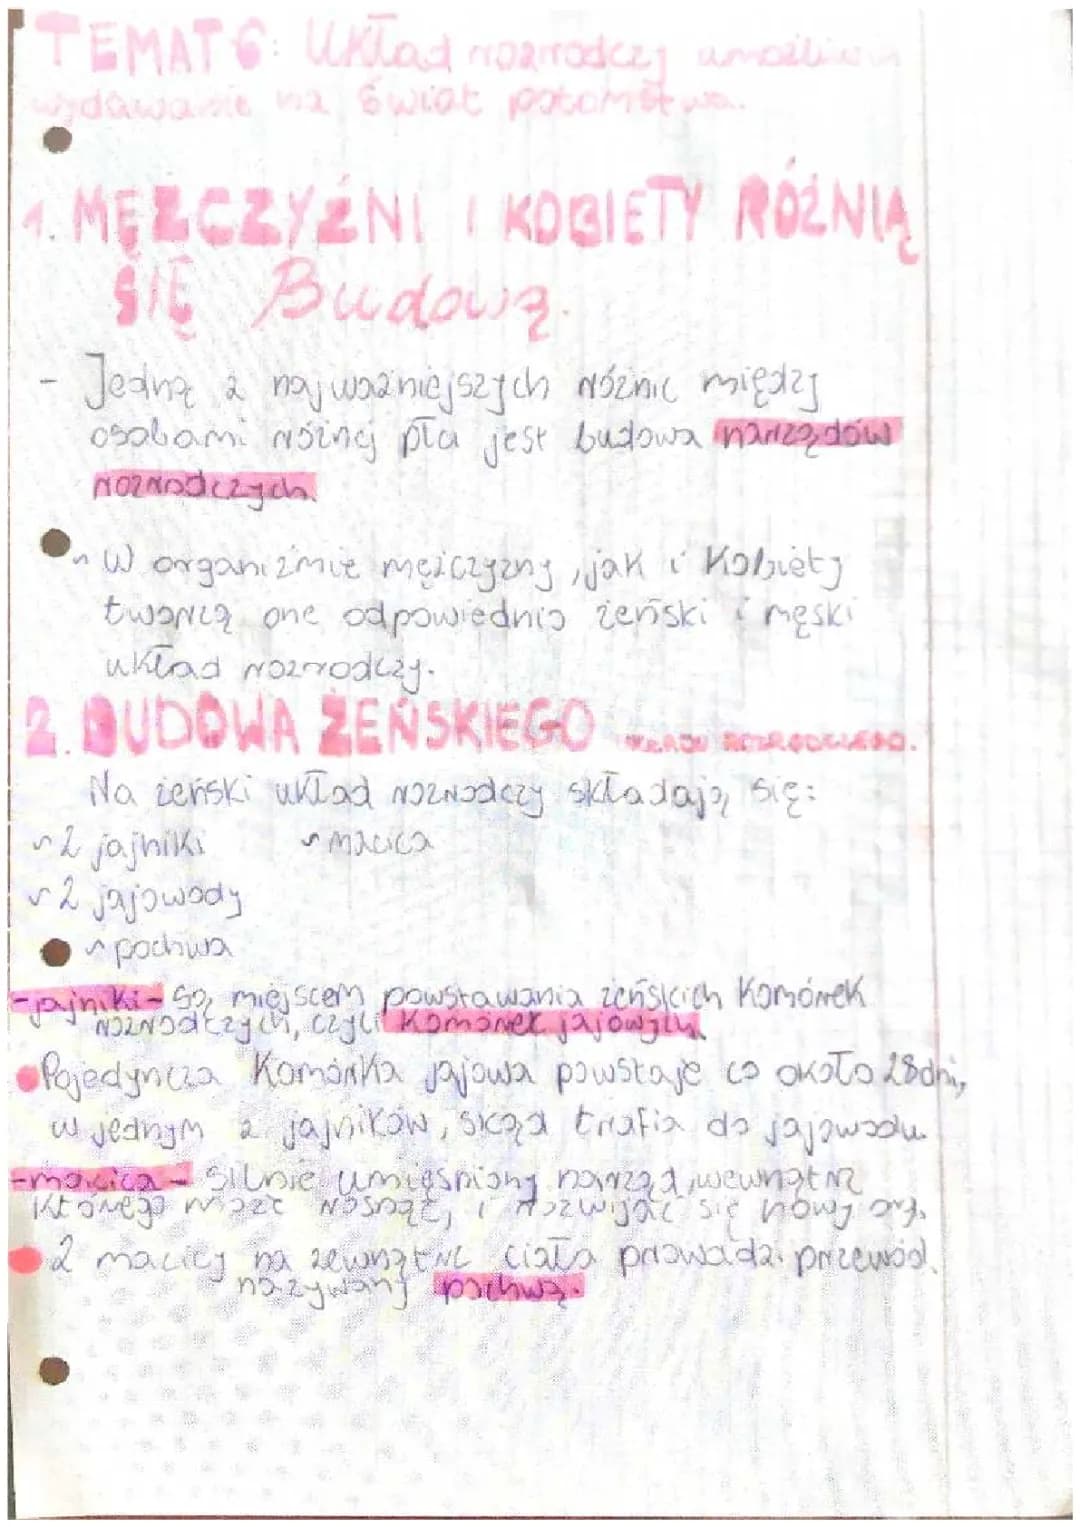 TEMAT 6: Układ rozrodczy umożliwia
wydawanie na świat potomstwa.
1. MĘŻCZYŹNI I KOBIETY RÓŻNIĄ
SIĘ Budową.
- Jedną z najważniejszych różnic między
osobami różnej płci jest budowa narządów
rozrodczych.
~ W organizmie mężczyzny, jak i Kobiety
tworzą one odpowiednio żeński i męski
układ rozrodczy.
2. BUDOWA ŻEŃSKIEGO UKŁADU ROZRODCZEGO.
Na żeński układ rozrodczy składają się:
~ 2 jajniki ~ macica
~ 2 jajowody
~ pochwa
- jajniki - są miejscem powstawania żeńskich Komórek
rozrodczych, czyli Komórek jajowych
Pojedyncza Komórka jajowa powstaje co około 28 dni,
w jednym z jajników, skąd trafia do jajowodu.
- macica - silnie umięśniony narząd, wewnątrz
Którego może rosnąć, i rozwijać się nowy org.
Z macicy na zewnątrz ciała prowadzi przewód
nazywany pochwą.